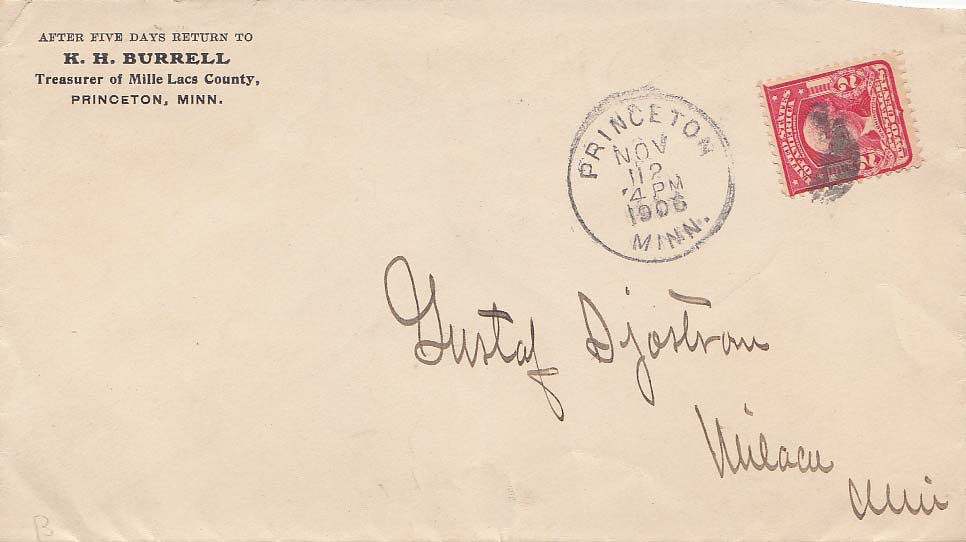 AFTER FIVE DAYS RETURN TO
K. H. BURRELL
Treasurer of Mille Lacs County,
PRINCETON, MINN.
PRINCETON
NOV
4 PM
1906
MINN.
UNITED STATES
OF AMERICA
2 2
Gustaf Sjostrom
Milaca
Min
B